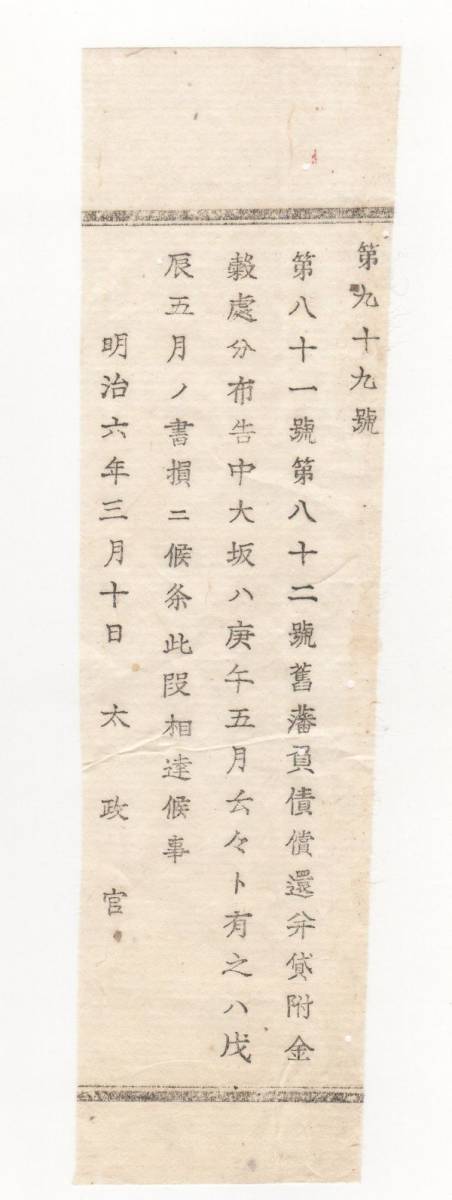 第九十九號
第八十一號第八十二號舊藩負債償還并貸附金
穀處分布告中大坂ハ庚午五月云々ト有之ハ戊
辰五月ノ書損ニ候条此段相達候事
明治六年三月十日　太政官